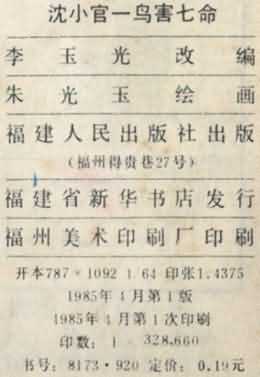 沈小官一鸟害七命
李玉光改编
朱光玉绘画
福建人民出版社出版
(福州得贵巷27号)
福建省新华书店发行
福州美术印刷厂印刷
开本787×1092 1 64 印张1.4375
1985年4月第1版
1985年4月第1次印刷
印数: 1 328,660
书号: 8173·920 定价: 0.19元